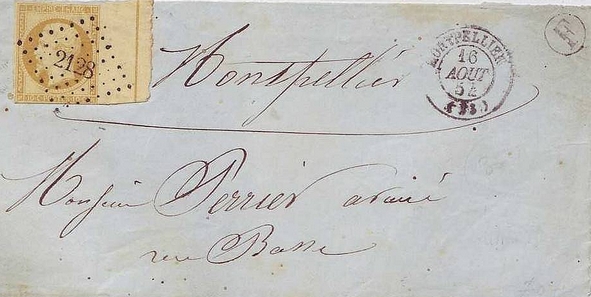 EMPIRE FRANC
2128
Montpellier
MONTPELLIER
16
AOUT
54
(33)
Monsieur Perrier avoué
rue Basse